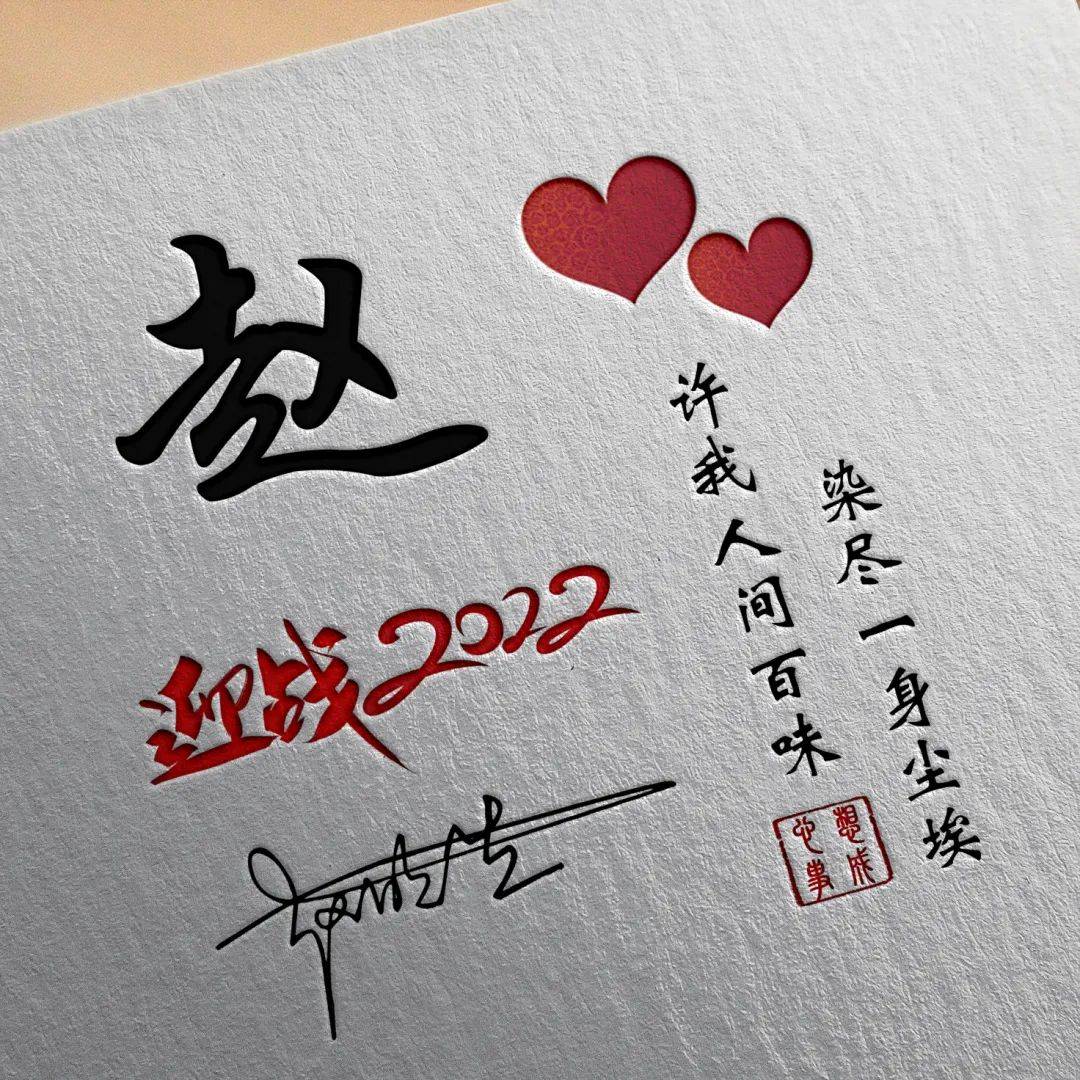 赵
迎战2022
染尽一身尘埃
许我人间百味
心想事成